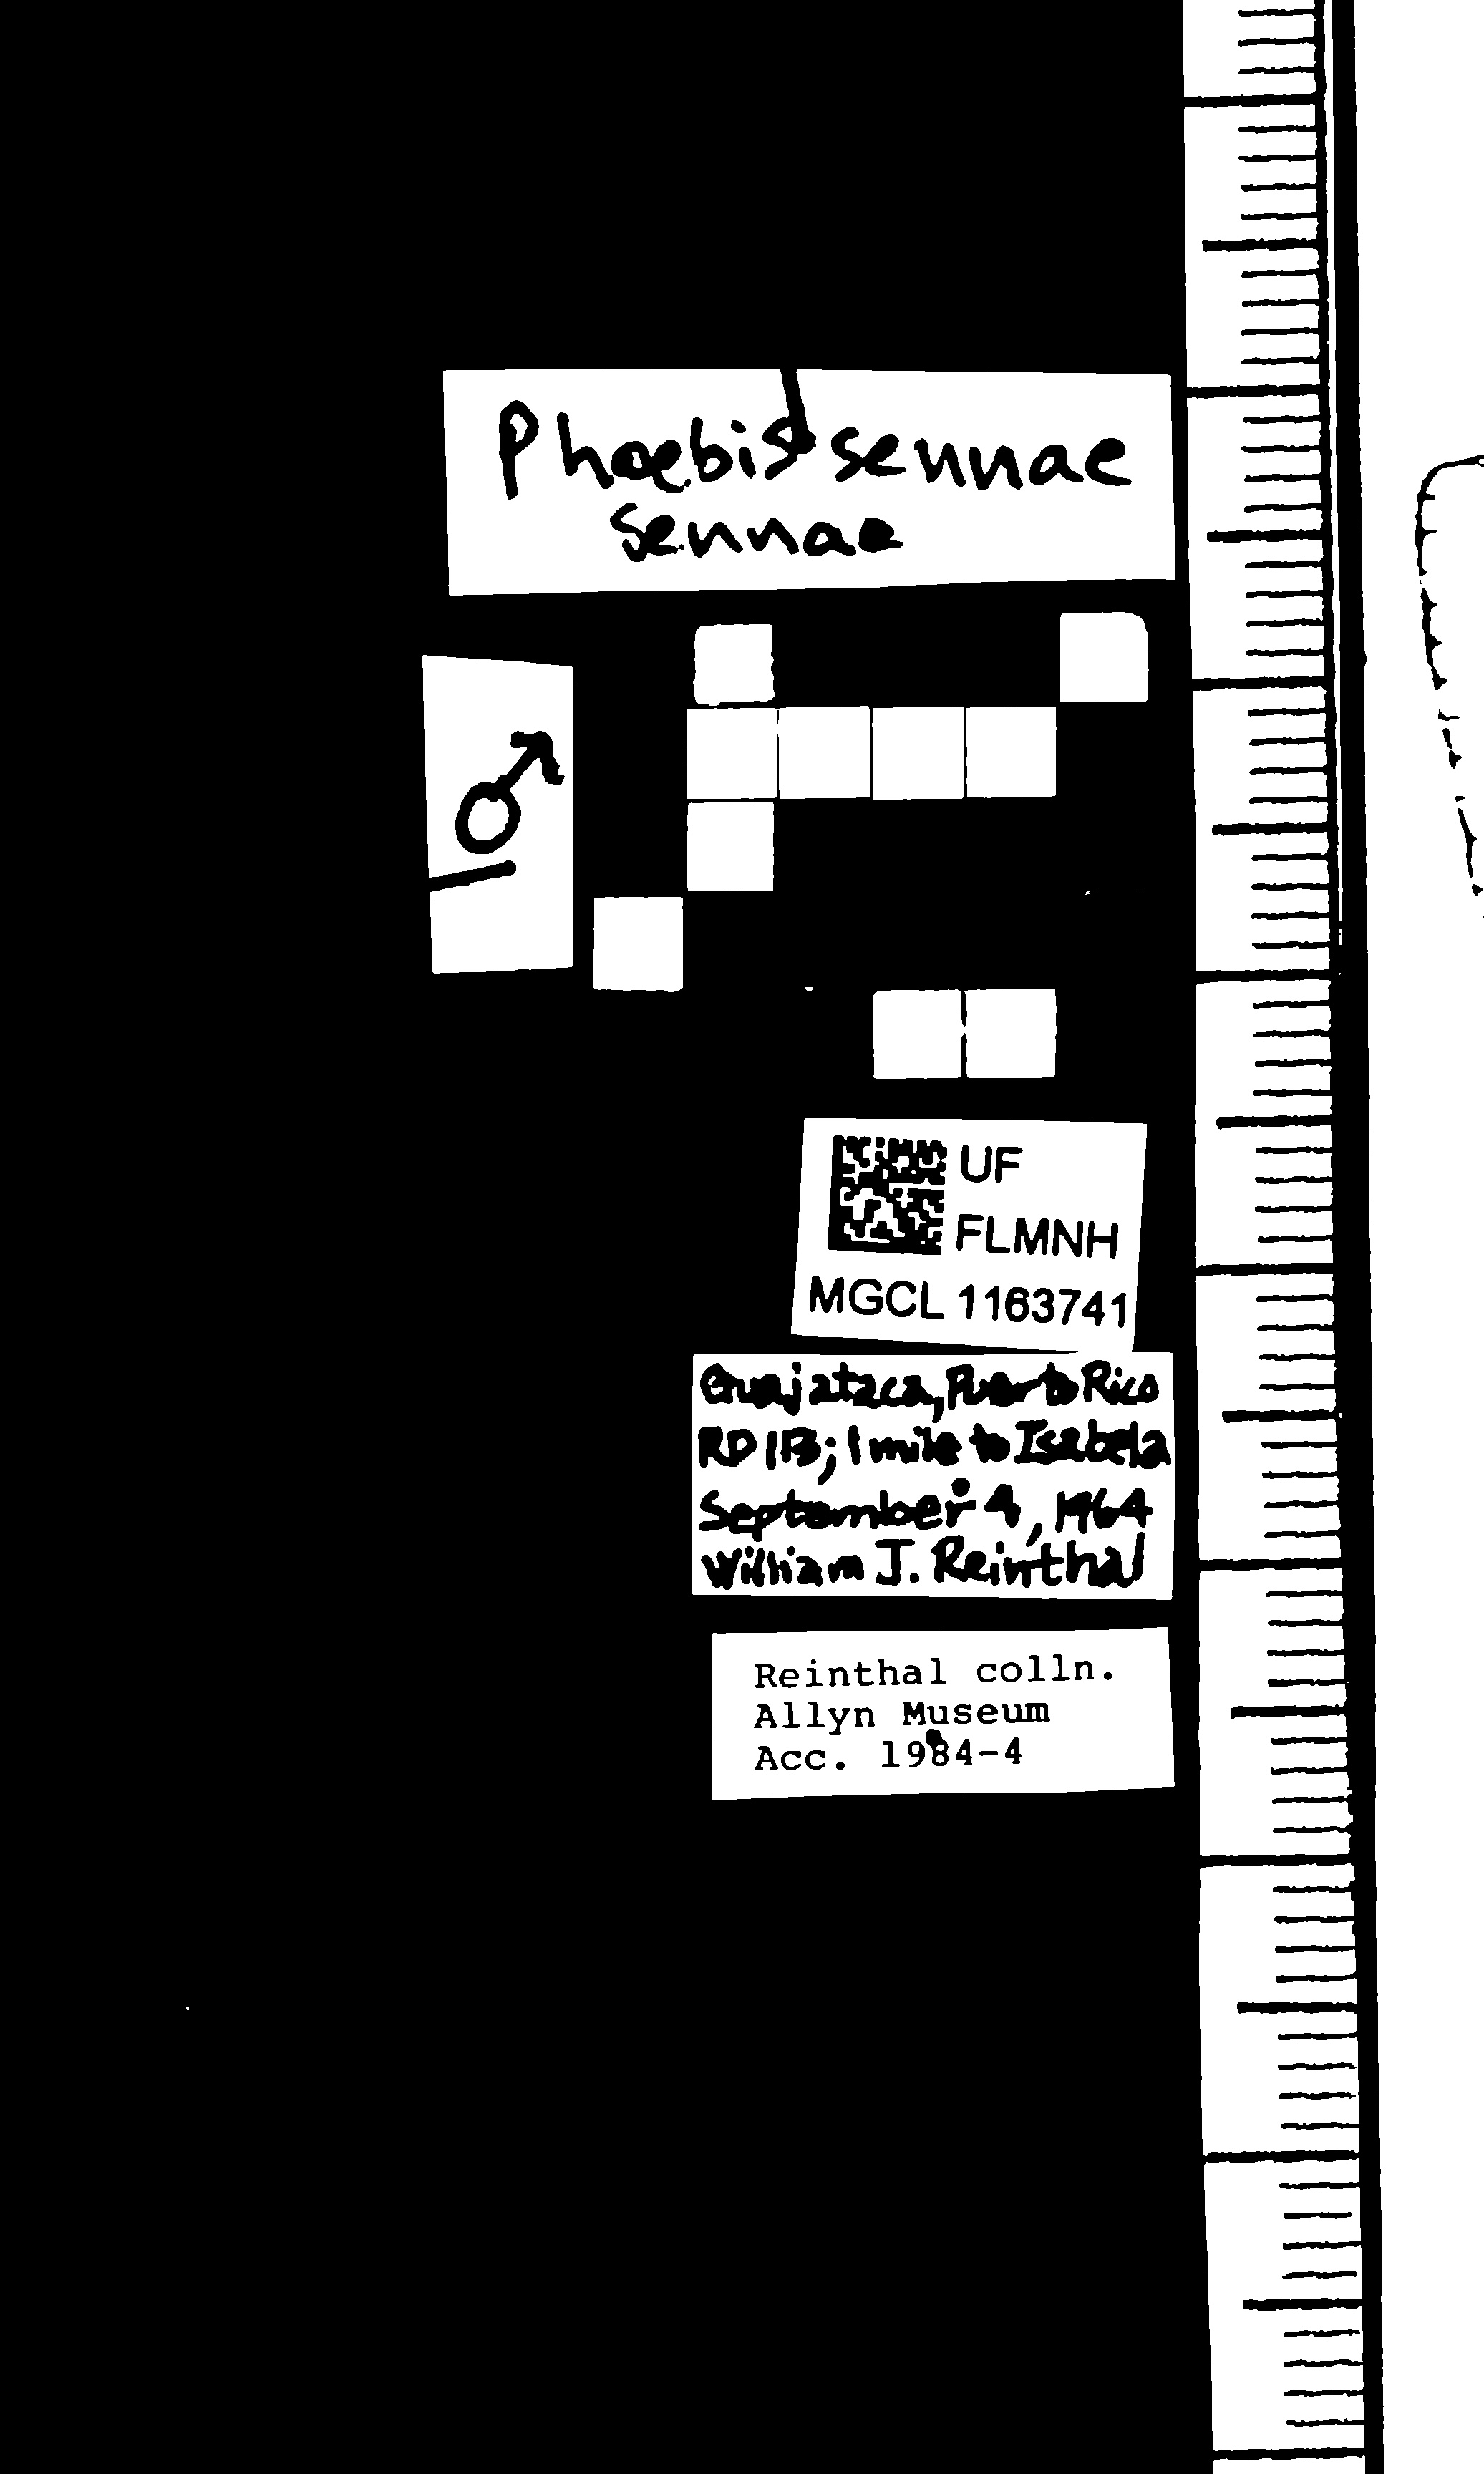 Phoebis sennae
sennae
♂
UF
FLMNH
MGCL 1163741
Guajataca, Puerto Rico
RD 113; 1 mile to Isabela
September 4, 1964
William J. Reinthal
Reinthal colln.
Allyn Museum
Acc. 1984-4